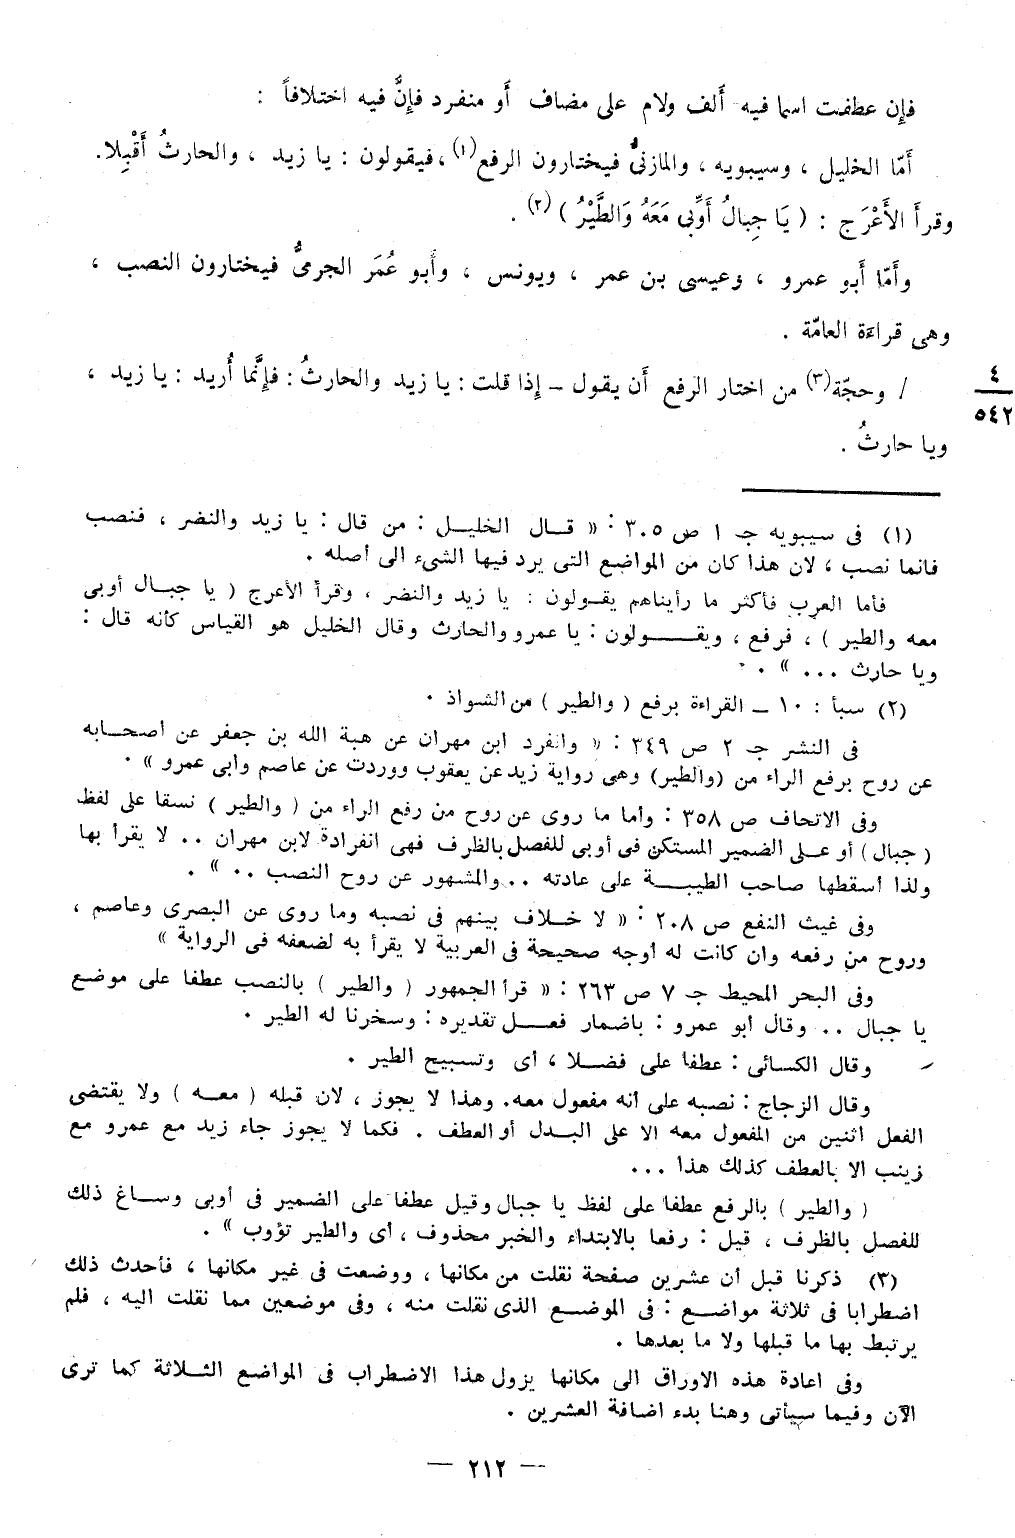 فإِن عطفت اسما فيه أَلف ولام على مضاف أَو منفرد فإِنَّ فيه اختلافاً :
أَمّا الخليل ، وسيبويه ، والمازنىُّ فيختارون الرفع(١) ، فيقولون : يا زيد ، والحارثُ أَقْبِلا.
وقرأَ الأَعْرَج : ( يَا جِبالُ أَوِّبِى مَعَهُ وَالطَّيْرُ ) (٢) .
وأَمّا أَبو عمرو ، وعيسى بن عمر ، ويونس ، وأَبو عُمَر الجرمىُّ فيختارون النصب ،
وهى قراءَة العامّة .
/ وحجّة(٣) من اختار الرفع أَن يقول – إِذا قلت : يا زيد والحارثُ : فإِنَّما أُريد : يا زيد ،
٤
٥٤٢
ويا حارثُ .
(١) فى سيبويه جـ ١ ص ٣٠٥ : « قــال الخليــل : من قال : يا زيد والنضر ، فنصب
فانما نصب ، لان هذا كان من المواضع التى يرد فيها الشىء الى أصله .
فأما العرب فأكثر ما رأيناهم يقــولون : يا زيد والنضر ، وقرأ الأعرج ( يا جبــال أوبى
معه والطير ) ، فرفع ، ويقــــولون : يا عمرو والحارث وقال الخليل هو القياس كأنه قال :
ويا حارث ... » .
(٢) سبأ : ١٠ – القراءة برفع ( والطير ) من الشواذ .
فى النشر جـ ٢ ص ٣٤٩ : « وانفرد ابن مهران عن هبة الله بن جعفر عن أصحــابه
عن روح برفع الراء من (والطير) وهى رواية زيد عن يعقوب ووردت عن عاصم وأبى عمرو » .
وفى الاتحاف ص ٣٥٨ : وأما ما روى عن روح من رفع الراء من ( والطير ) نسقا على لفظ
( جبال ) أو عــلى الضمير المستكن فى أوبى للفصل بالظرف فهى انفرادة لابن مهران .. لا يقرأ بها
ولذا أسقطها صاحب الطيبــــة على عادته .. والمشهور عن روح النصب .. » .
وفى غيث النفع ص ٢٠٨ : « لا خــلاف بينهم فى نصبه وما روى عن البصرى وعاصم ،
وروح من رفعه وان كانت له أوجه صحيحة فى العربية لا يقرأ به لضعفه فى الرواية »
وفى البحر المحيط جـ ٧ ص ٢٦٣ : « قرأ الجمهور ( والطير ) بالنصب عطفا على موضع
يا جبال .. وقال أبو عمرو : باضمار فعــــل تقديره : وسخرنا له الطير .
وقال الكسائى : عطفا على فضــــلا ، أى وتسبيح الطير .
وقال الزجاج : نصبه على أنه مفعول معه. وهذا لا يجوز ، لان قبله ( معــه ) ولا يقتضى
الفعل اثنين من المفعول معه الا على البــدل أو العطف . فكما لا يجوز جاء زيد مع عمرو مع
زينب الا بالعطف كذلك هذا ...
( والطير ) بالرفع عطفا على لفظ يا جبال وقيل عطفا على الضمير فى أوبى وســاغ ذلك
للفصل بالظرف ، قيل : رفعا بالابتداء والخبر محذوف ، أى والطير تؤوب » .
(٣) ذكرنا قبل أن عشرين صفحة نقلت من مكانها ، ووضعت فى غير مكانها ، فأحدث ذلك
اضطرابا فى ثلاثة مواضــع : فى الموضــع الذى نقلت منه ، وفى موضعين مما نقلت اليه ، فلم
يرتبط بها ما قبلها ولا ما بعدها .
وفى اعادة هذه الاوراق الى مكانها يزول هذا الاضطراب فى المواضع الثــلاثة كما ترى
الآن وفيما سيأتى وهنا بدء اضافة العشرين .
— ٢١٢ —